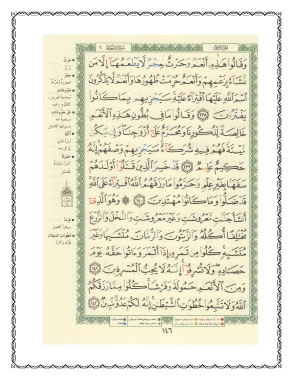 وَقَالُوا۟ هَٰذِهِۦٓ أَنْعَٰمٌ وَحَرْثٌ حِجْرٌ لَّا يَطْعَمُهَآ إِلَّا مَن
نَّشَآءُ بِزَعْمِهِمْ وَأَنْعَٰمٌ حُرِّمَتْ ظُهُورُهَا وَأَنْعَٰمٌ لَّا يَذْكُرُونَ
ٱسْمَ ٱللَّهِ عَلَيْهَا ٱفْتِرَآءً عَلَيْهِ سَيَجْزِيهِم بِمَا كَانُوا۟
يَفْتَرُونَ ١٣٨ وَقَالُوا۟ مَا فِى بُطُونِ هَٰذِهِ ٱلْأَنْعَٰمِ
خَالِصَةٌ لِّذُكُورِنَا وَمُحَرَّمٌ عَلَىٰٓ أَزْوَٰجِنَا وَإِن يَكُن
مَّيْتَةً فَهُمْ فِيهِ شُرَكَآءُ سَيَجْزِيهِمْ وَصْفَهُمْ إِنَّهُۥ
حَكِيمٌ عَلِيمٌ ١٣٩ قَدْ خَسِرَ ٱلَّذِينَ قَتَلُوٓا۟ أَوْلَٰدَهُمْ
سَفَهًۢا بِغَيْرِ عِلْمٍ وَحَرَّمُوا۟ مَا رَزَقَهُمُ ٱللَّهُ ٱفْتِرَآءً عَلَى ٱللَّهِ
قَدْ ضَلُّوا۟ وَمَا كَانُوا۟ مُهْتَدِينَ ١٤٠ وَهُوَ ٱلَّذِىٓ
أَنشَأَ جَنَّٰتٍ مَّعْرُوشَٰتٍ وَغَيْرَ مَعْرُوشَٰتٍ وَٱلنَّخْلَ وَٱلزَّرْعَ
مُخْتَلِفًا أُكُلُهُۥ وَٱلزَّيْتُونَ وَٱلرُّمَّانَ مُتَشَٰبِهًا وَغَيْرَ
مُتَشَٰبِهٍ كُلُوا۟ مِن ثَمَرِهِۦٓ إِذَآ أَثْمَرَ وَءَاتُوا۟ حَقَّهُۥ يَوْمَ
حَصَادِهِۦ وَلَا تُسْرِفُوٓا۟ إِنَّهُۥ لَا يُحِبُّ ٱلْمُسْرِفِينَ ١٤١
وَمِنَ ٱلْأَنْعَٰمِ حَمُولَةً وَفَرْشًا كُلُوا۟ مِمَّا رَزَقَكُمُ
ٱللَّهُ وَلَا تَتَّبِعُوا۟ خُطُوَٰتِ ٱلشَّيْطَٰنِ إِنَّهُۥ لَكُمْ عَدُوٌّ مُّبِينٌ ١٤٢
١٤٦